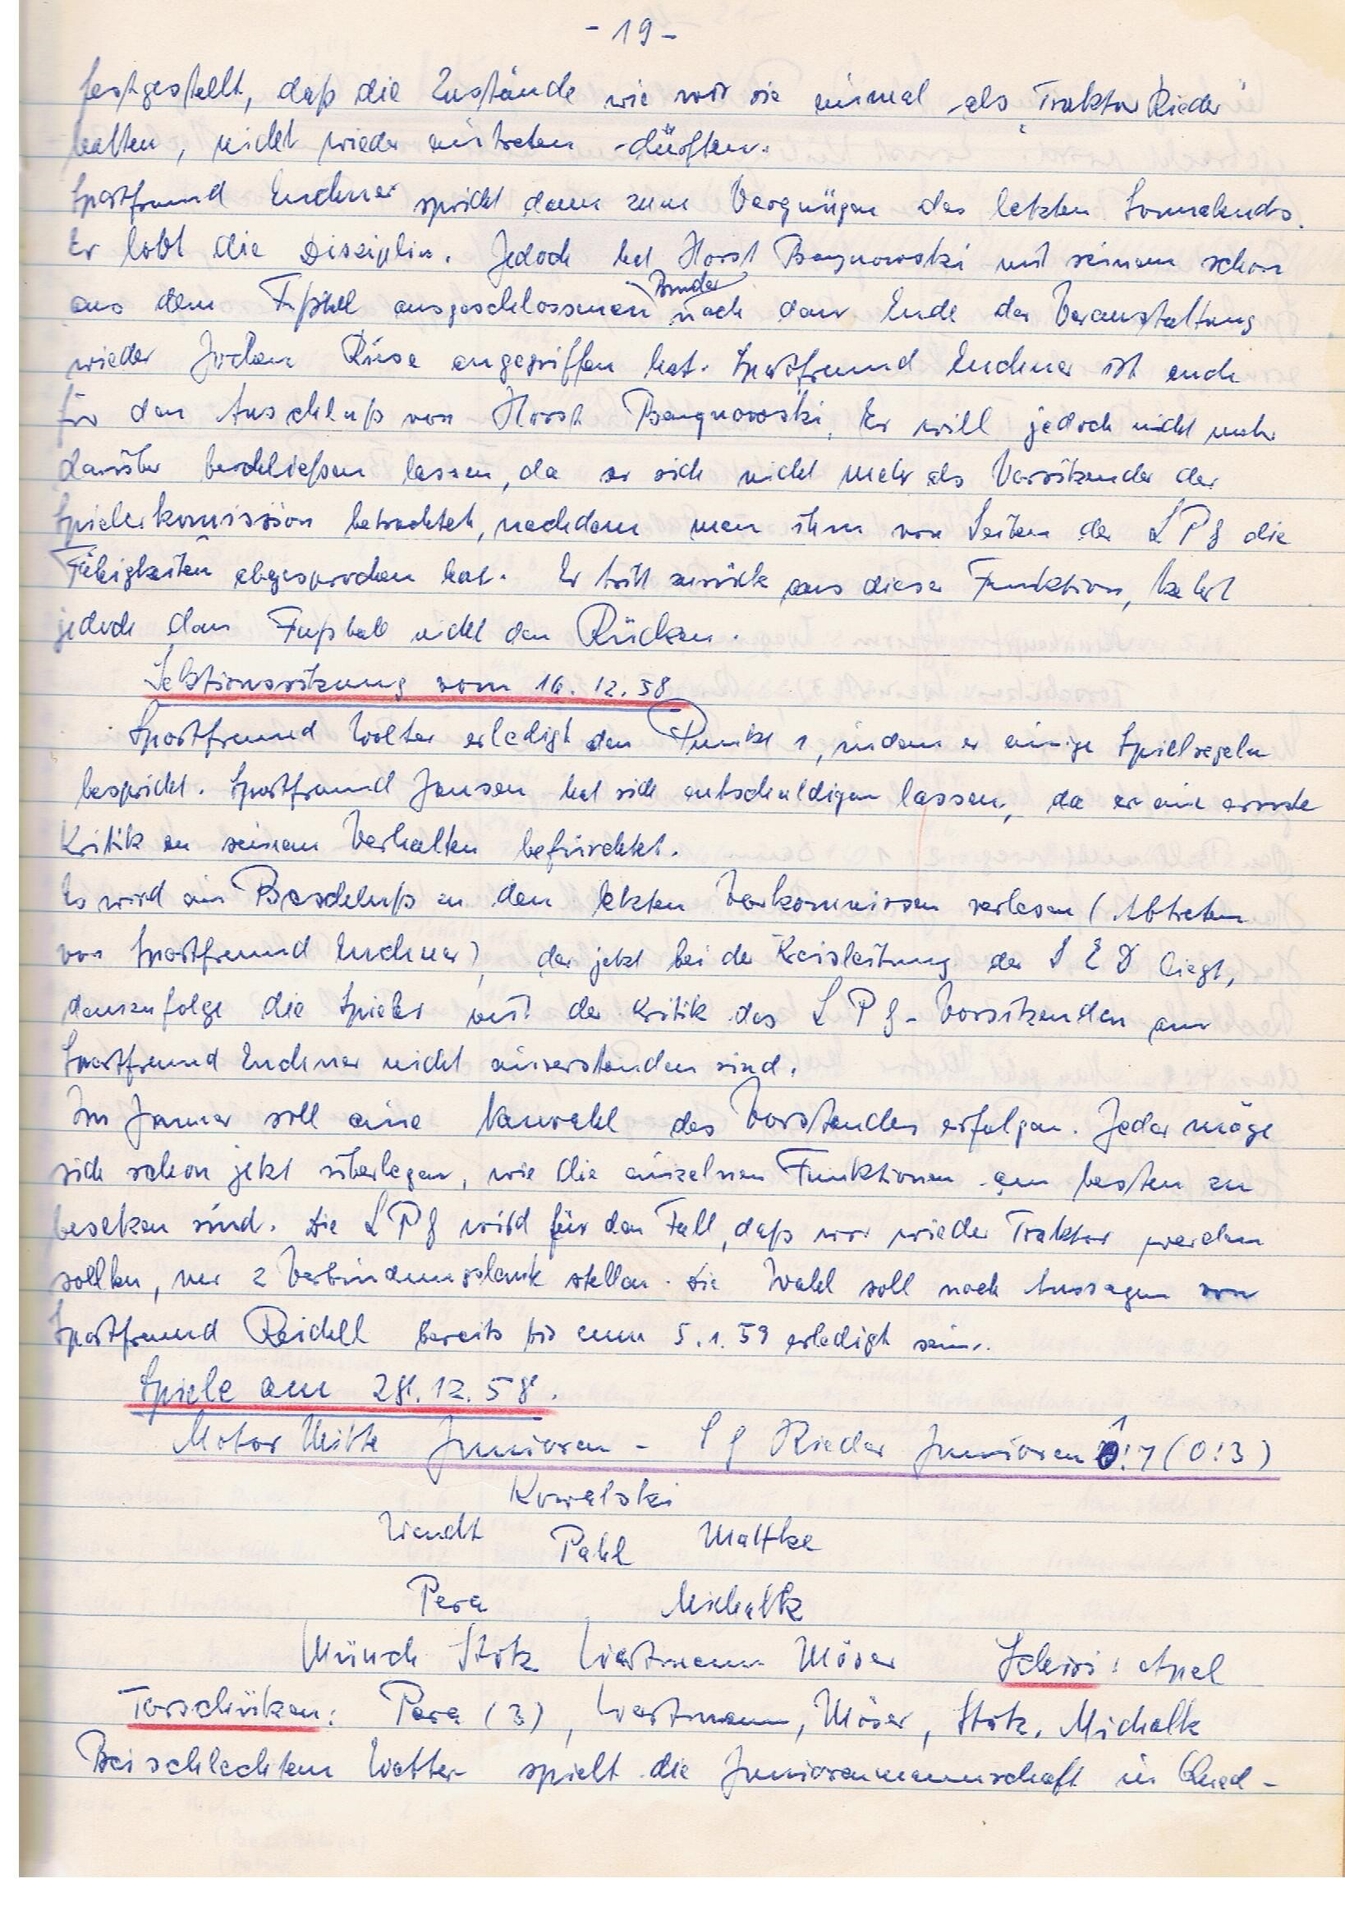 - 19 -
festgestellt, daß die Zustände wie wir sie einmal als Traktor Rieder
hatten, nicht wieder eintreten dürften.
Sportfreund Enchner spricht dann zum Vergnügen des letzten Sonnabends.
Er lobt die Disziplin. Jedoch hat Horst Bagnowski mit seinem schon
aus dem Fußball ausgeschlossenen Bruder nach dem Ende der Veranstaltung
wieder Jochen Riese angegriffen hat. Sportfreund Enchner ist auch
für den Auschluß von Horst Bagnowski. Er will jedoch nicht mehr
darüber beschließen lassen, da er sich nicht mehr als Vorsitzender der
Spielerkomission betrachtet, nachdem man ihm von Seiten der LPG die
Fähigkeiten abgesprochen hat. Er tritt zurück aus dieser Funktion, kehrt
jedoch dem Fußball nicht den Rücken.
Sektionssitzung vom 16.12.58
Sportfreund Wolter erledigt den Punkt 1, indem er einige Spielregeln
bespricht. Sportfreund Jansen hat sich entschuldigen lassen, da er eine ernste
Kritik an seinem Verhalten befürchtet.
Es wird ein Beschluß zu den letzten Vorkomnissen verlesen (Abtreten
von Sportfreund Enchner), der jetzt bei der Kreisleitung der SED liegt,
demzufolge die Spieler mit der Kritik des LPG-Vorsitzenden am
Sportfreund Enchner nicht einverstanden sind.
Im Januar soll eine Neuwahl des Vorstandes erfolgen. Jeder möge
sich schon jetzt überlegen, wie die einzelnen Funktionen am besten zu
besetzen sind. Die LPG wird für den Fall, daß wir wieder Traktor werden
sollten, nur 2 Verbindungsleute stellen. Die Wahl soll nach Aussagen von
Sportfreund Reidell bereits bis zum 5.1.59 erledigt sein.
Spiele am 28.12.58.
Motor Mitte Junioren - SG Rieder Junioren 1:7 (0:3)
Kowalski
Ziendt Pahl Mattke
Pera Michalk
Münch Stötz Wertmann Möser Schiri: Apel
Torschützen: Pera (3), Wertmann, Möser, Stötz, Michalk
Bei schlechtem Wetter spielt die Juniorenmannschaft in Qued-